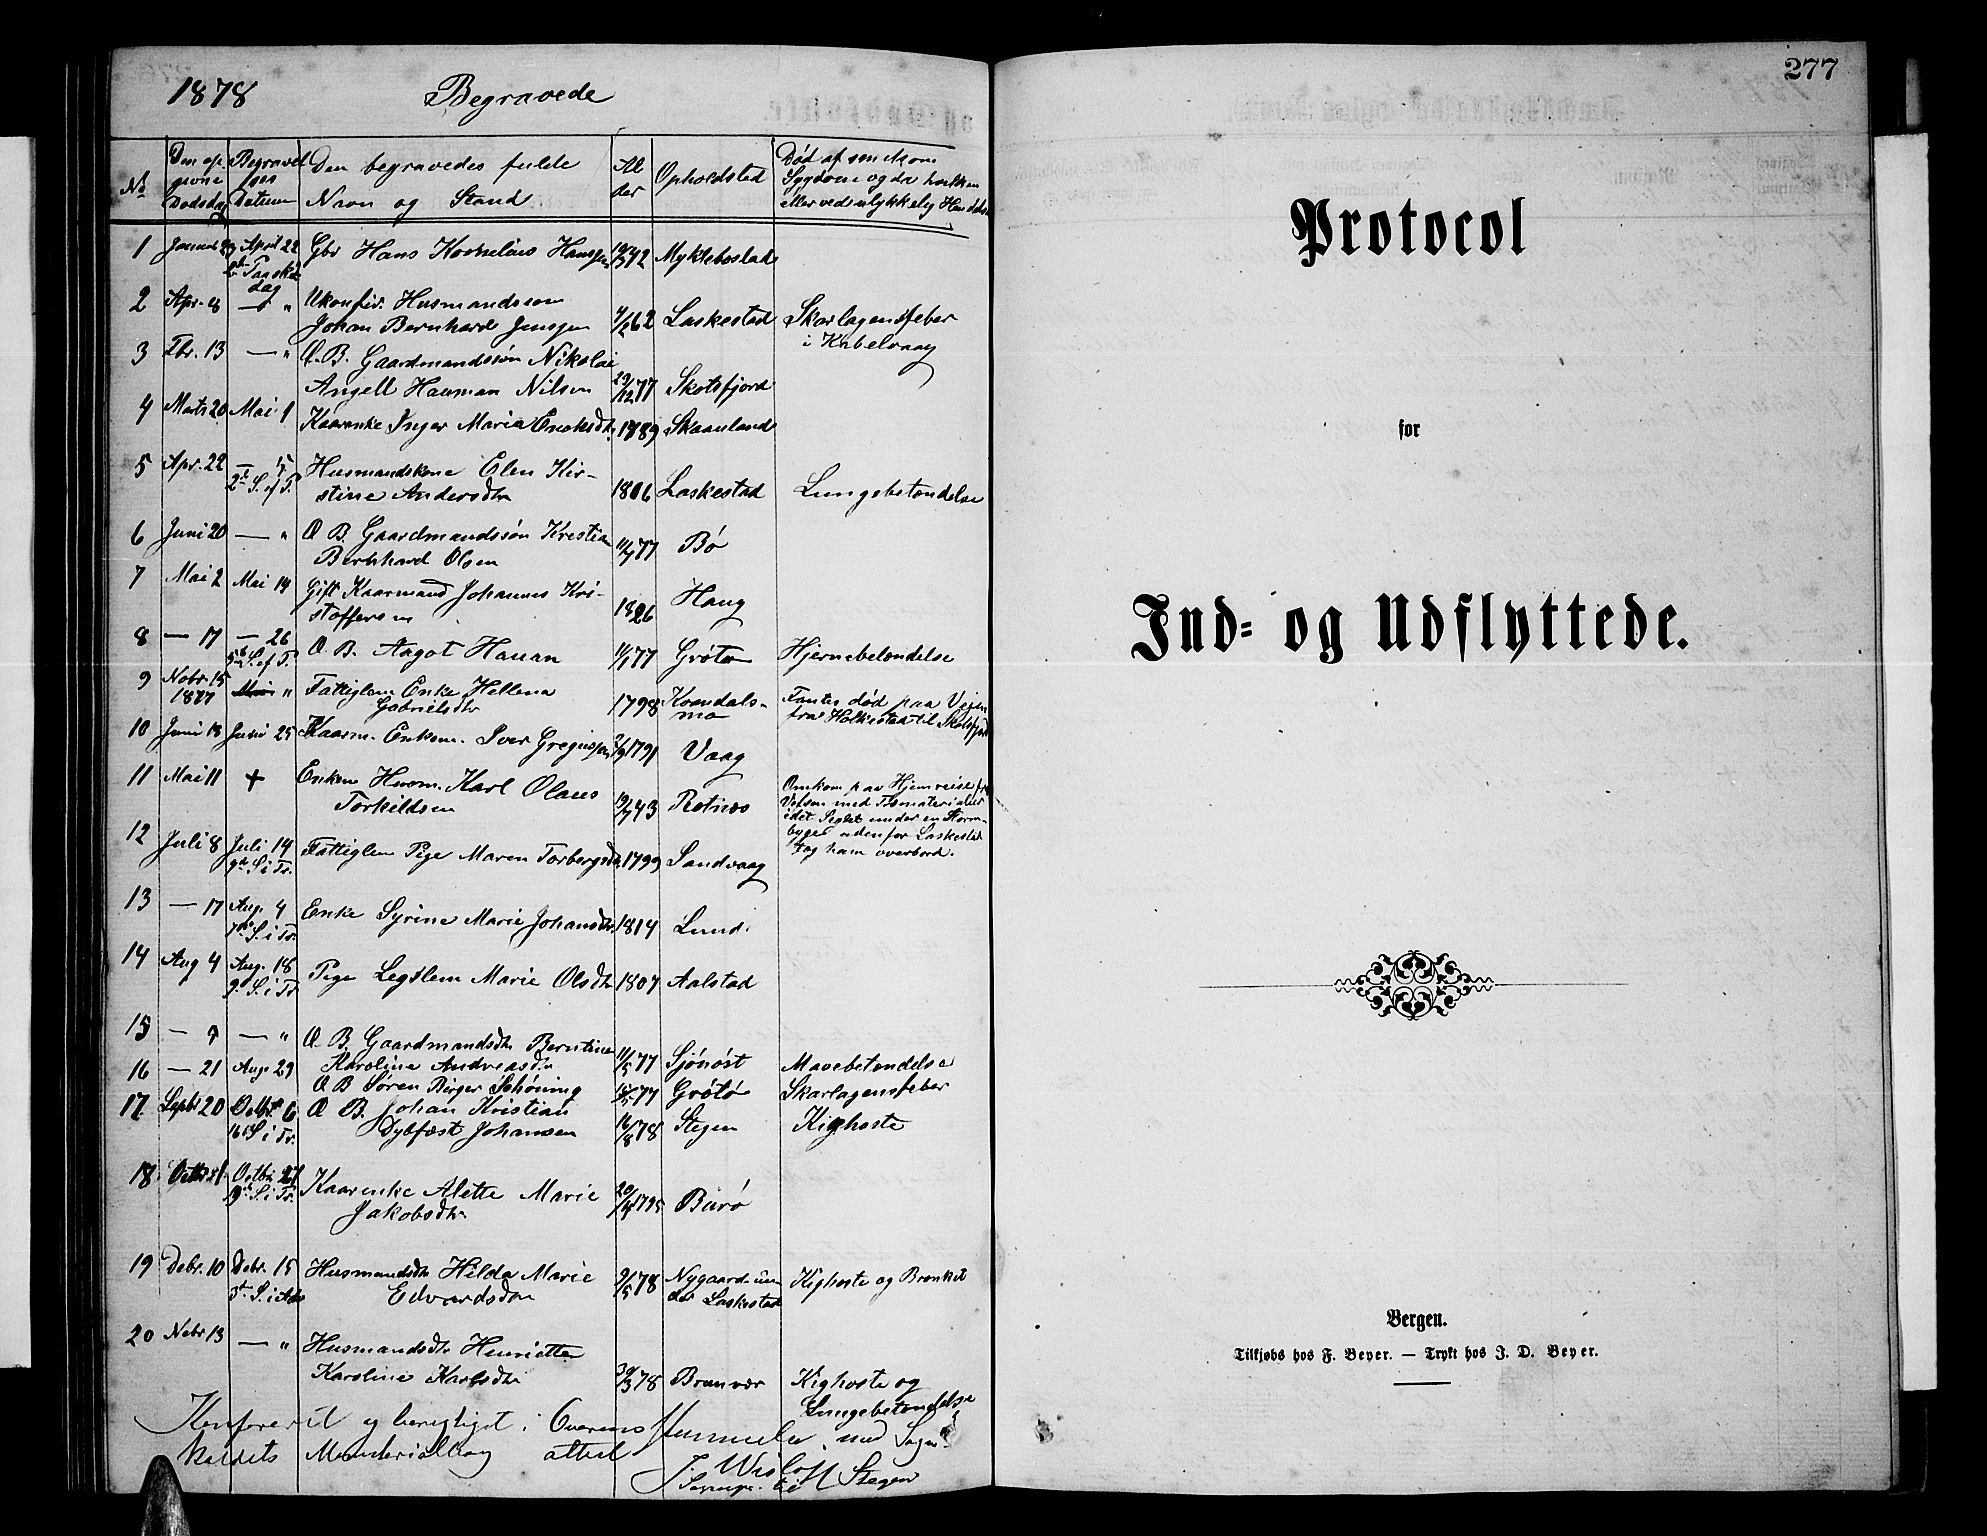 1878 Begravede
No Den op givne Dødsdag Begravel ses Datum Den begravedes fulde Navn og Stand Al der Opholdsted Død af smitsom Sygdom og da hvilken eller ved ulykkelig Hændelse
1 April 22 Gbr Hans Kornelius Hansen 42 Myklebostad
2 Apr. 8 — " Ukonfir. Husmandssøn
Johan Bernhard Jensen 62 Laskestad Skarlagensfeber
i Kabelvaag
3 Fbr. 13 — " U.B. Gaardmandssøn Nikolai
Angell Hauman Nilsen 29/12 77 Skotsfjord
4 Marts 20 Mai 1 Kaarenke Inger Maria Enoksdtr. 1789 Skaanland
5 Apr. 22 — 5
2. S. ef P. Husmandskone Elen Kir-
stine Andersdtr 1806 Laskestad Lungebetændelse
6 Juni 20 — " U B. Gaardmandssøn Kristian
Bernhard Olsen 77 Bø
7 Mai 2 Mai 19 Gift Kaarmand Johannes Kri-
stoffersen 1826 Haug
8 — 17 — 26
5 S. ef P. U. B. Aagot Hauan 77 Grøtø Hjernebetændelse
9 Nobr. 15
1877 " Fattiglem Enke Hellena
Gabrielsdtr 1798 Kvandals-
mo Fantes død paa Vejen
fra Holkestad til Skotsfjord
10 Juni 13 Juni 25 Kaarm. Enkem. Iver Gregusen 1791 Vaag
11 Mai 11 + Enkem Husm. Karl Olaus
Torkildsen 43 Rotnæs Omkom paa Hjemreise fra
Vefsen med
idet Seglet under en Storm-
byge udenfor Laskestad
tog ham overbord.
12 Juli 8 Juli 14
S i Tr. Fattiglem Pige Maren Torbergsdtr 1799 Sandvaag
13 — 17 Aug. 4
7 S. i Tr. Enke Syrine Marie Johansdtr. 1814 Lund
14 Aug 4 Aug. 18
9. S. i Tr Pige Legdlem Marie Olsdtr 1807 Aalstad
15 — 7 — " U. B. Gaardmandsdtr Berntine
Karoline Andreasdtr 11/5 77 Sjønøst Mavebetændelse
16 — 21 Aug. 29 U B Søren Birger Schøning 77 Grøtø Skarlagensfeber
17 Septbr 20 Octbr. 6
16 S i Tr. U B. Johan Kristian
Dybfæst Johansen 16/8 78 Stegen Kighoste
18 Octbr. 27
19 S. i Tr. Kaarenke Alette Marie
Jakobsdtr 1795 Burø
19 Debr. 10 Debr. 15
3. S. i Adv Husmandsdtr Hilda Marie
Edvardsdtr 9/5 78 Nygaard un
der Laskestad Kighoste og Bronket
20 Nobr 13 — " Husmandsdtr Henriette
Karoline Karlsdtr 30/3 78 Brunvær Kighoste og
Lungebetændelse
Konfereret og berigtiget i Overensstemmelse med Sogne-
kaldets Ministerialbog attest
J. Wisløff
Sognepr. til Stegen
277
Protocol
for
Ind- og Udflyttede.
Bergen.
Tilkjøbs hos F. Beyer. — Trykt hos J. D. Beyer.